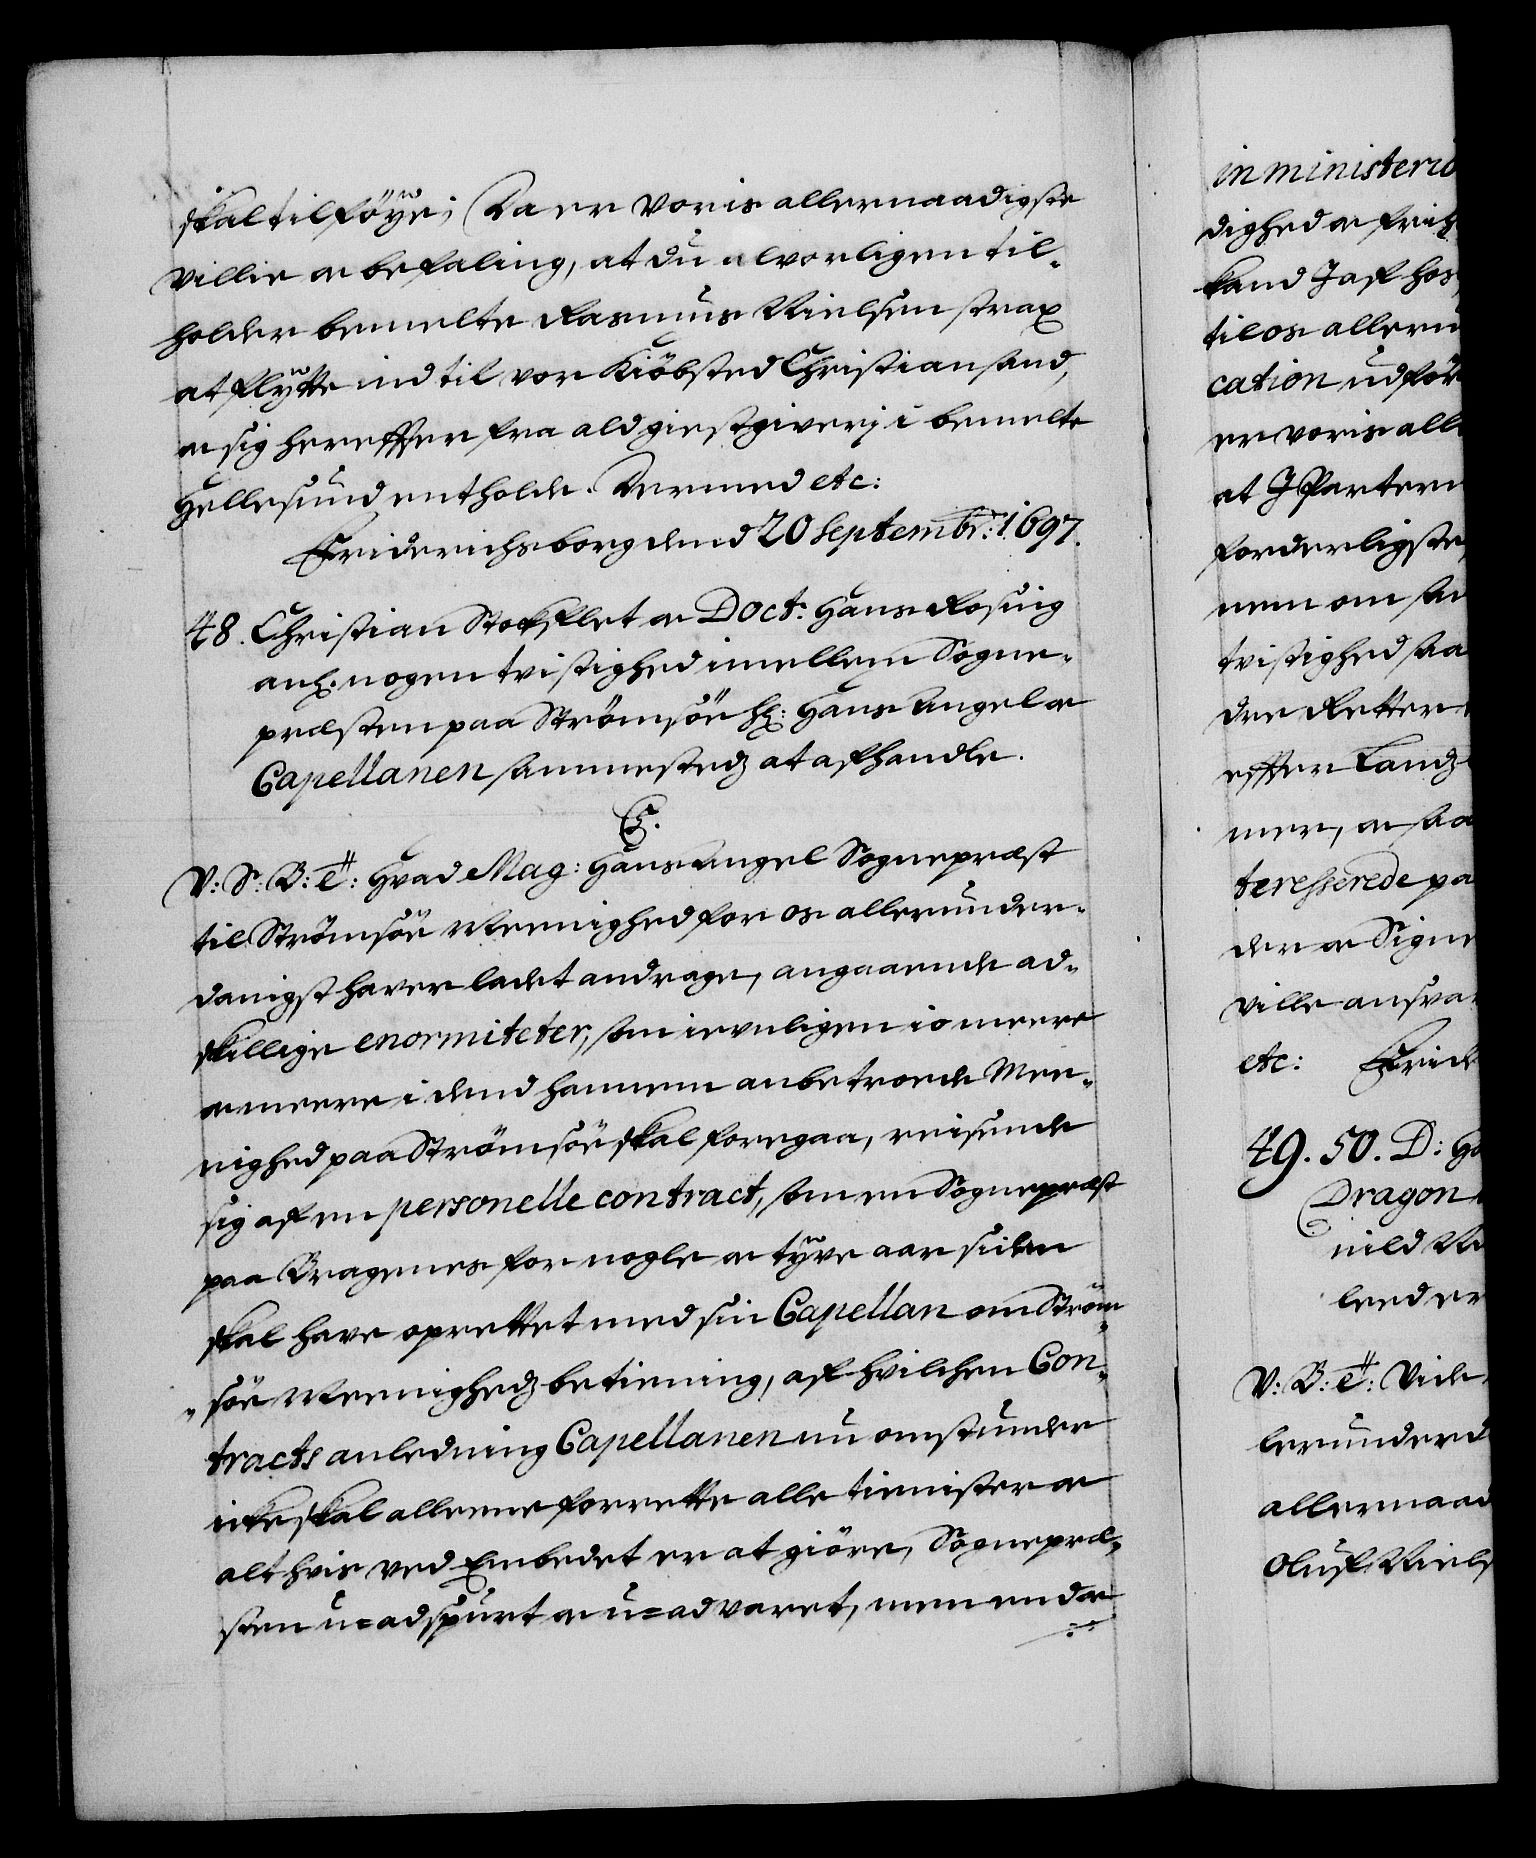 skal tilföye; Da er voris allernaadigste
villie oc befaling, at du alvorligen til-
holder bemelte Rasmus Nielsen strax
at flytte ind til vor Kiöbsted Christiansand,
oc sig hereffter fra ald giestgiverj i bemelte
Hellesund entholde. Dermed etc:
Friderichsborg dend 20 Septembr: 1697.
48. Christian Stockflet oc Doct: Hans Rosing
anl. nogen tvistighed imellem Sogne-
præsten paa Strömsöe Hr: Hans Angel oc
Capellanen sammesteds at afhandle.
C5.
V: S: B: e: Hvad Mag: Hans Angel Sognepræst
til Strömsöe Meenighed for os allerunder-
danigst haver ladet andrage, angaaende ad-
skillige enormiteter, som ievnligen io meere
oc meere i dend hannem anbetroede Mee-
nighed paa Strömsöe skal foregaa, reisende
sig af en personelle contract, som en Sognepræst
paa Bragenes for nogle oc tyve aar siden
skal have oprettet med sin Capellan om Ström-
söe Meenigheds betiening, af hvilchen Con-
tracts anledning Capellanen nu omstunder
icke skal alleene forrette alle tienister oc
alt hvis ved Embedet er at giöre, Sognepræ-
sten u=adspurt oc u=advaret, men end oc
in ministerio
dighed oc frih
kand I af hos
til os allern
cation udför
er voris alle
at I Partern
forderligste
nem om sa
tvistighed saa
dee Retter
effter Lands
mer, oc saa
teresserede pa
der oc Signe
ville ansvar
etc: Frid
49. 50. D: H
Dragon
nild
leeder
V: B: e: Vide
lerunderd
allernaad
Oluf Niels